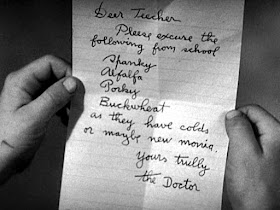 Deer Teecher
Pleese excuse the
following from school
Spanky
Alfalfa
Porky
Buckwheat
as they have colds
or maybe new monia.
Yours trully
the Doctor